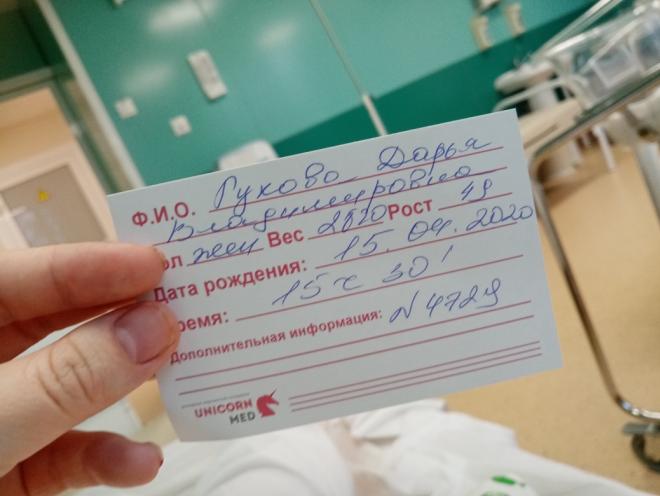 Ф.И.О. Гукова Дарья
Владимировна
ол жен Вес 2820 Рост 49
Дата рождения: 15.04.2020
ремя: 15ч 30'
Дополнительная информация: N 4729
UNICORN
MED